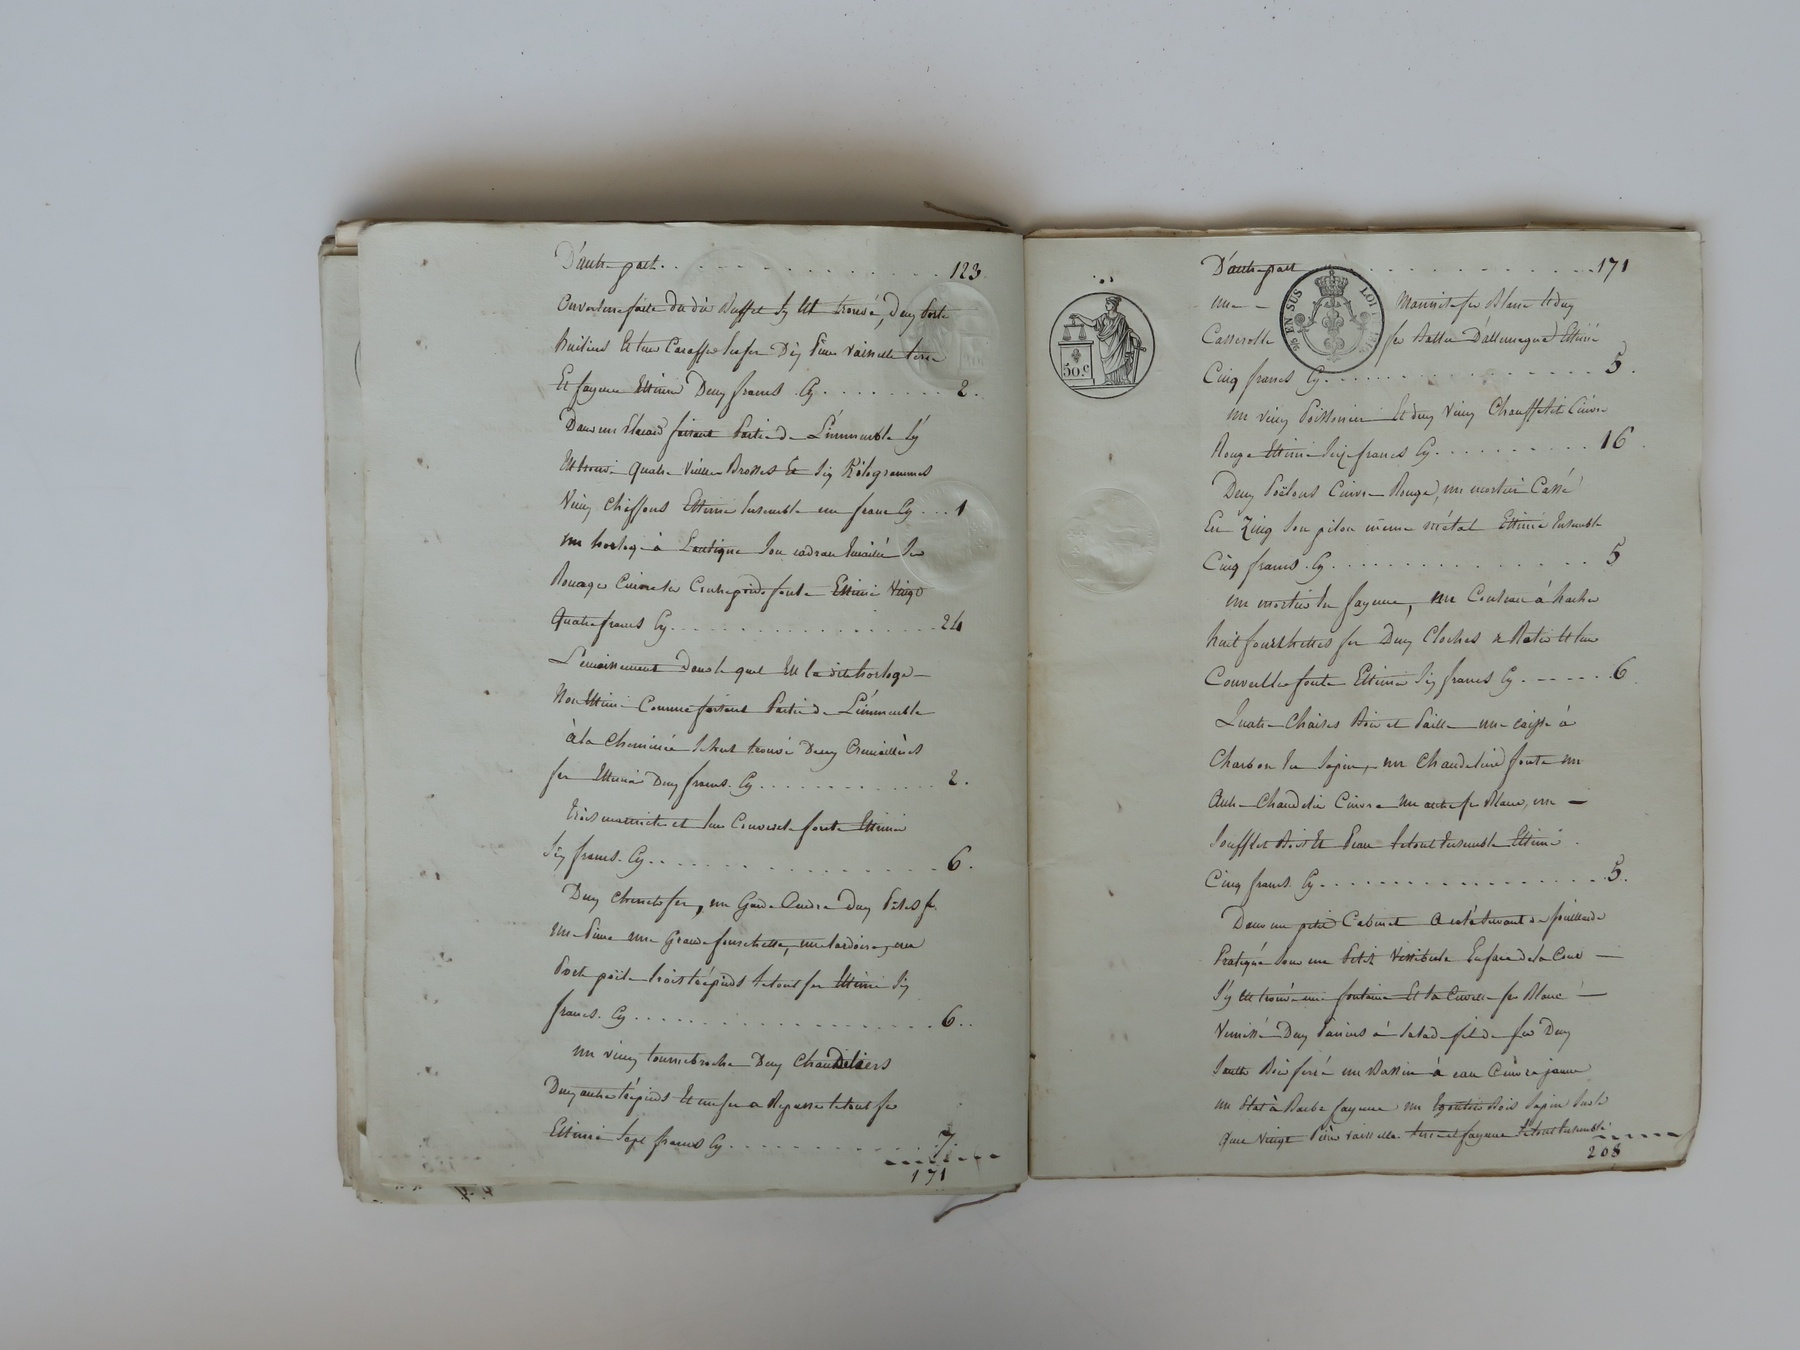 D'autre part . . . . . . . . . . . . 123
Ouverture faite du dit Buffet s'y est trouvé, Deux Porte
huiliers Et une Caraffe verre Dix Pièces vaisselle terre
Et fayence Estimé Deux francs Cy . . . . . . . . 2.
Dans un Placard faisant Partie de L'immeuble s'y
Est trouvé quatre vieilles Brosses Et Six Kilogrammes
Vieux chiffons Estimé Ensemble un franc Cy . . . 1
un horloge à L'antique Son cadran Emaillé Ses
Rouages Cuivre les Contrepoids fonte Estimé Vingt
Quatre francs Cy . . . . . . . . . . . . . . 24
L'encaissement Dans le quel Est la dite horloge
Non Estimé Comme faisant Partie de L'immeuble
à la Cheminée S'est trouvé Deux Cremaillères
fer Estimé Deux francs. Cy . . . . . . . . . . . 2.
trois marmites et leurs Couvercles fonte Estimé
Six francs. Cy . . . . . . . . . . . . . . 6.
Deux chenets fer, un Garde Cendre Deux Pelles fer
une Pince une Grande fourchette, une lardoire, un
Porte poële trois trépieds le tout fer Estimé Six
francs. Cy . . . . . . . . . . . . . . . . 6..
un vieux tournebroche Deux Chandeliers
Deux autres trépieds Et un fer a Repasser le tout fer
Estimé Sept francs Cy . . . . . . . . . . 7.
171
D'autre part . . . . . . . . . . . . 171
EN SUS LOI
une Marmite fer Blanc Et deux
Casserolle fer Battu D'allemagne Estimé
Cinq francs Cy . . . . . . . . . . . . . . 5.
50.c
un vieux Poissonnier Et deux vieux Chauffelit Cuivre
Rouge Estimé Seize francs Cy . . . . . . . . . . 16.
Deux Poëlons Cuivre Rouge, un mortier Cassé
En Zinq Son pilon même métal Estimé Ensemble
Cinq francs. Cy . . . . . . . . . . . . . . 5
un mortier En fayence, un Couteau à hacher
huit fourchettes fer Deux Cloches & Rotir Et leur
Couvercles fonte Estimé Six francs Cy . . . . . . . 6
Quatre Chaises Bois et Paille une caisse à
Charbon En Sapin, un Chandelier fonte un
Autre Chandelier Cuivre un autre fer Blanc, un
Soufflet Bois Et Peau le tout Ensemble Estimé
Cinq francs. Cy . . . . . . . . . . . . . . 5.
Dans un petit Cabinet
Pratiqué Sous un Petit Vestibule En face de la Cour
S'y Est trouvé une fontaine Et sa Cuvette fer Blanc
Vernissé Deux Paniers à Salade fil de fer Deux
Seaux Bois ferré un Bassin à eau Cuivre jaune
un Plat à Barbe fayence un Egouttoir Bois Sapin
Quatre Vingt Pièces vaisselle terre et fayence Le tout Ensemble
208